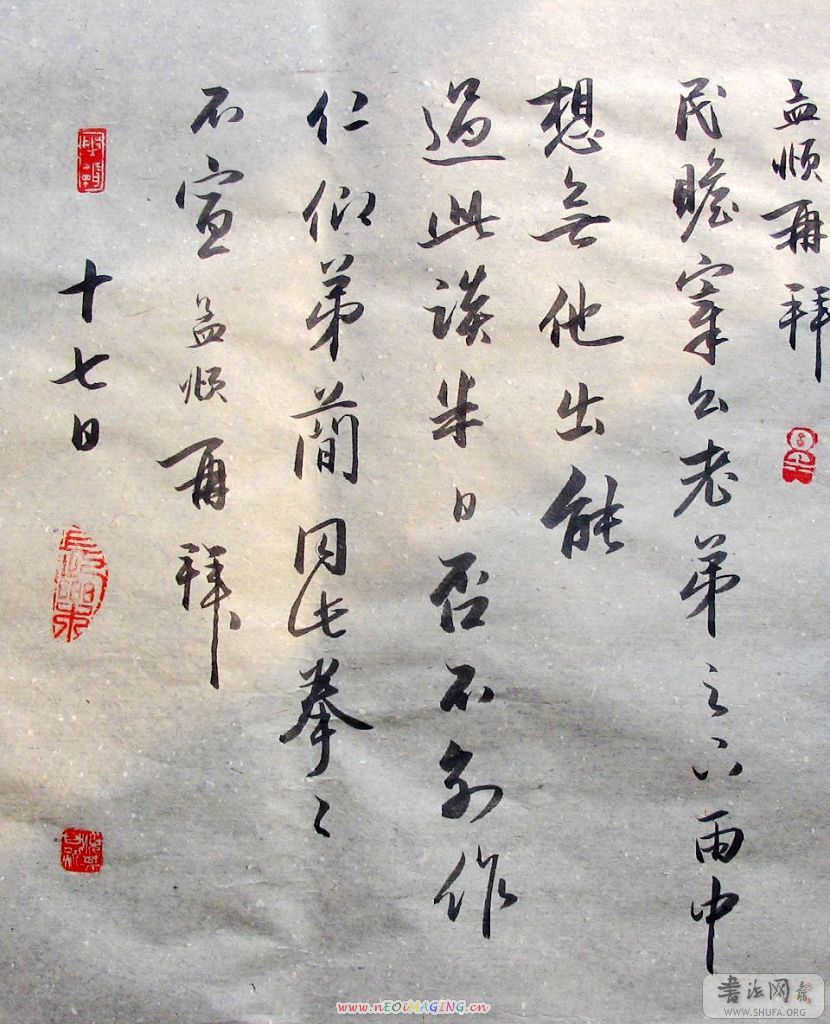 孟頫再拜
民瞻宰公老弟之下雨中
想無他出能
過此談半日否不别作
仁仰弟簡同此拳〻
不宣孟頫再拜
十七日
www.nEOiMAGiNG.cn
书法网
WWW.SHUFA.ORG